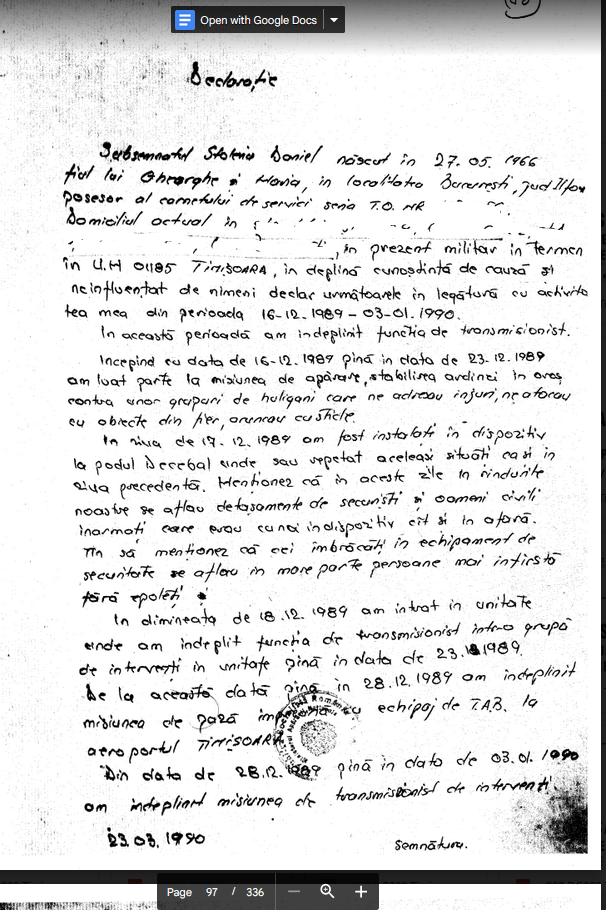 Open with Google Docs
Declarație
Subsemnatul Stoleriu Daniel născut în 27.05.1966
fiul lui Gheorghe și Maria, în localitatea București, jud Ilfov
posesor al carnetului de servici seria T.O. NR
Domiciliul actual în
, în prezent militar in termen
în U.M 01185 TIMIȘOARA, în deplină cunoștință de cauză și
neinfluențat de nimeni declar următoarele în legătură cu activita
tea mea din perioada 16-12.1989 – 03-01.1990.
In această perioadă am indeplinit funcția de transmisionist.
Incepind cu data de 16-12.1989 pină in data de 23.12.1989
am luat parte la misiunea de apărare, stabilirea ordinei în oraș
contra unor grupuri de huligani care ne adresau injuri, ne atacau
cu obiecte din fier, aruncau cu sticle.
In ziua de 17.12.1989 am fost instalați în dispozitiv
la podul Decebal unde, sau repetat aceleași situati ca și in
ziua precedentă. Menționez că in aceste zile in rindurile
noastre se aflau detașamente de securiști și oameni civili
inarmați care erau cu noi in dispozitiv cit și in afară.
Tin să menționez că cei îmbrăcați in echipament de
securitate se aflau in mare parte persoane mai in virstă
fără epoleți
In dimineața de 18.12.1989 am intrat in unitate
unde am indeplit funcția de transmisionist intr-o grupă
de intervenți in unitate pină in data de 23.12.1989.
De la această dată pină in 28.12.1989 am indeplinit
misiunea de pază cu echipaj de T.A.B. la
aeroportul TIMIȘOARA
Din data de 28.12.1989 pină in data de 03.01.1990
am indeplinit misiunea de transmisionist de intervenți.
23.03.1990
Semnătura.
Page 97 / 336